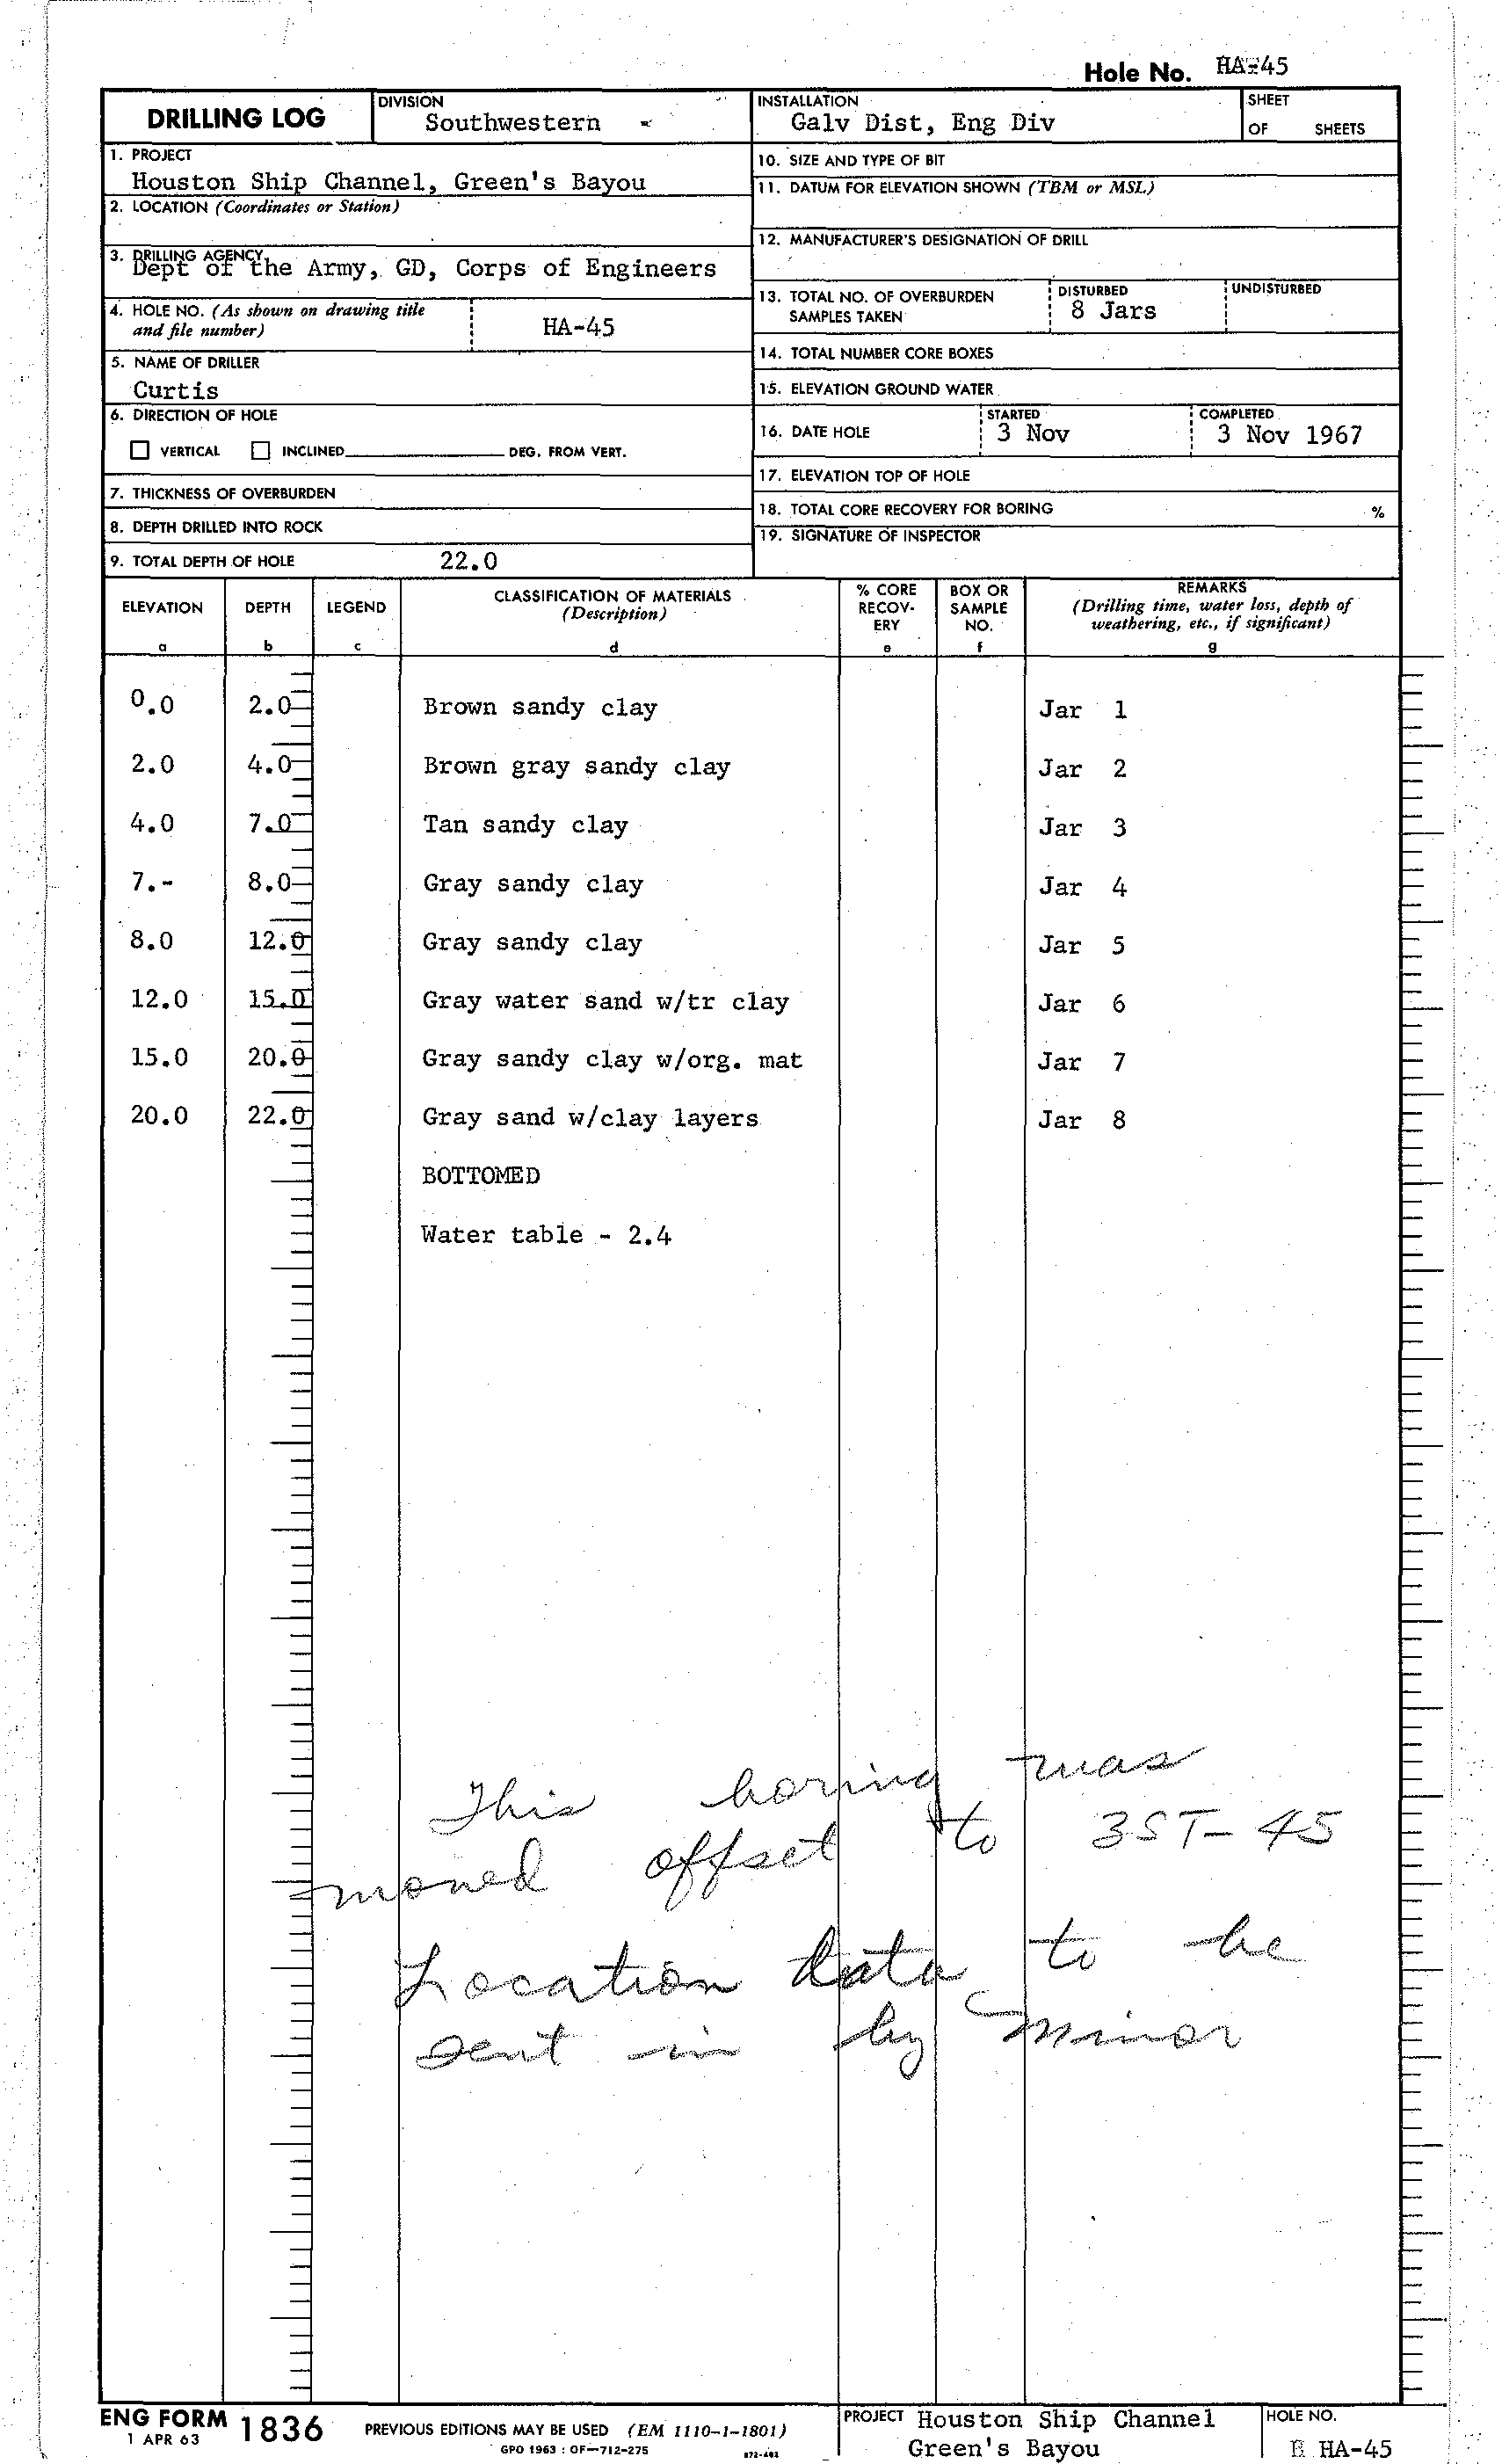 Hole No. HA-45
DRILLING LOG
DIVISION
Southwestern
INSTALLATION
Galv Dist, Eng Div
SHEET
OF SHEETS
1. PROJECT
Houston Ship Channel, Green's Bayou
2. LOCATION (Coordinates or Station)
3. DRILLING AGENCY
Dept of the Army, GD, Corps of Engineers
4. HOLE NO. (As shown on drawing title
and file number)
HA-45
5. NAME OF DRILLER
Curtis
6. DIRECTION OF HOLE
VERTICAL INCLINED DEG. FROM VERT.
7. THICKNESS OF OVERBURDEN
8. DEPTH DRILLED INTO ROCK
9. TOTAL DEPTH OF HOLE 22.0
10. SIZE AND TYPE OF BIT
11. DATUM FOR ELEVATION SHOWN (TBM or MSL)
12. MANUFACTURER'S DESIGNATION OF DRILL
13. TOTAL NO. OF OVERBURDEN
SAMPLES TAKEN
DISTURBED
8 Jars
UNDISTURBED
14. TOTAL NUMBER CORE BOXES
15. ELEVATION GROUND WATER
16. DATE HOLE
STARTED
3 Nov
COMPLETED
3 Nov 1967
17. ELEVATION TOP OF HOLE
18. TOTAL CORE RECOVERY FOR BORING %
19. SIGNATURE OF INSPECTOR
ELEVATION
a
DEPTH
b
LEGEND
c
CLASSIFICATION OF MATERIALS
(Description)
d
% CORE
RECOV-
ERY
e
BOX OR
SAMPLE
NO.
f
REMARKS
(Drilling time, water loss, depth of
weathering, etc., if significant)
g
0.0 2.0 Brown sandy clay Jar 1
2.0 4.0 Brown gray sandy clay Jar 2
4.0 7.0 Tan sandy clay Jar 3
7.- 8.0 Gray sandy clay Jar 4
8.0 12.0 Gray sandy clay Jar 5
12.0 15.0 Gray water sand w/tr clay Jar 6
15.0 20.0 Gray sandy clay w/org. mat Jar 7
20.0 22.0 Gray sand w/clay layers Jar 8
BOTTOMED
Water table - 2.4
This boring was
moved offset to 3ST-45
Location data to be
sent in by Minor
ENG FORM 1836
1 APR 63
PREVIOUS EDITIONS MAY BE USED (EM 1110-1-1801)
GPO 1963 : OF—712-275
PROJECT Houston Ship Channel
Green's Bayou
HOLE NO.
HA-45